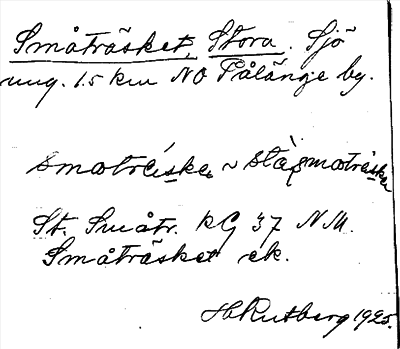 Småträsket, Stora. Sjö
ung. 1.5 km NO Pålänge by.
smɷtrǽska ~ stὰsmɷtrǽska
St. Småtr. kG 37 N.M.
Småträsket ek.
H Rutberg 1925.